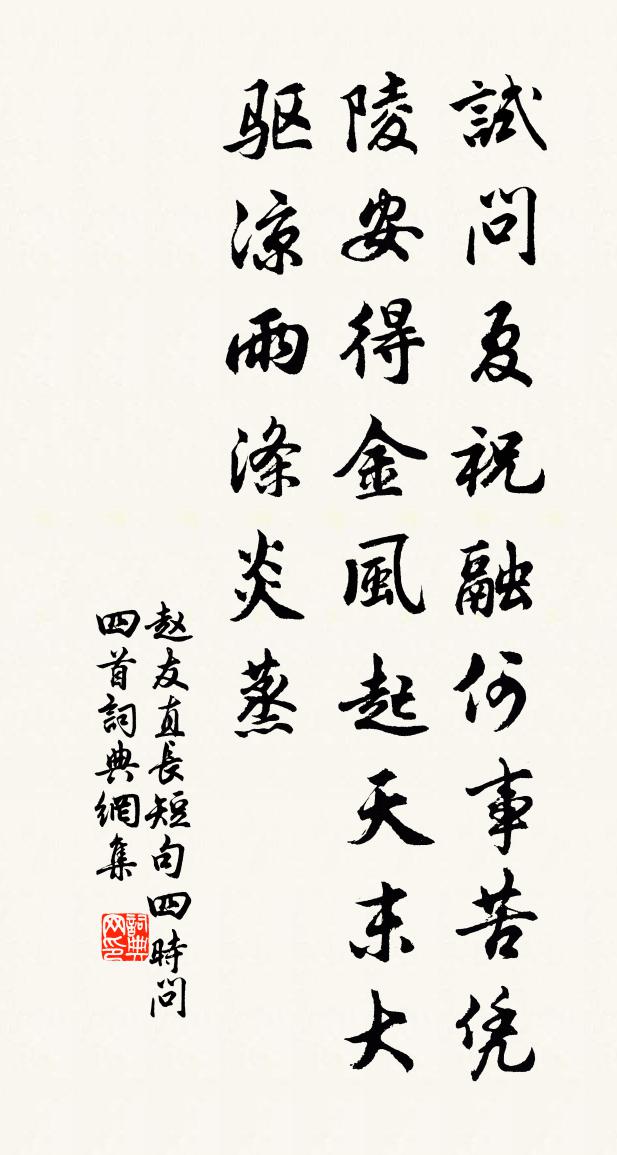 試問夏祝融何事苦凭
陵安得金風起天末大
驱凉雨滌炎蒸
赵友直長短句四時問
四首詞典網集
詞典网印